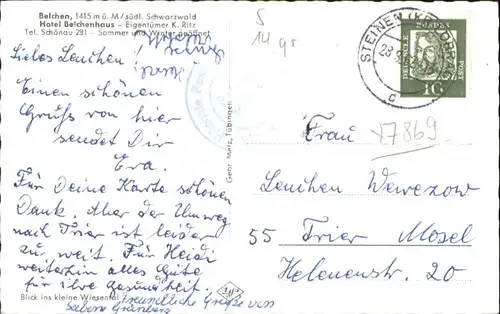 Belchen, 1415 m ü. M/südl. Schwarzwald
Hotel Belchenhaus – Eigentümer K. Ritz
Tel. Schönau 281 – Sommer und Winter geöffnet
Liebes Lenchen
Einen schönen
Gruß von hier
sendet Dir
Eva.
Für Deine Karte schönen
Dank. Aber der Umweg
nach Trier ist leider
zu weit. Für Heidi
weiterhin alles Gute
für ihre Gesundheit.
Blick ins kleine Wiesental
Freundliche Grüße von
Sabine
Gebr. Metz, Tübingen
5
14 gr
STEINEN
DEUTSCHE
POST
10
17869
Frau
Lenchen Wewezow
55 Trier Mosel
Helenenstr. 20